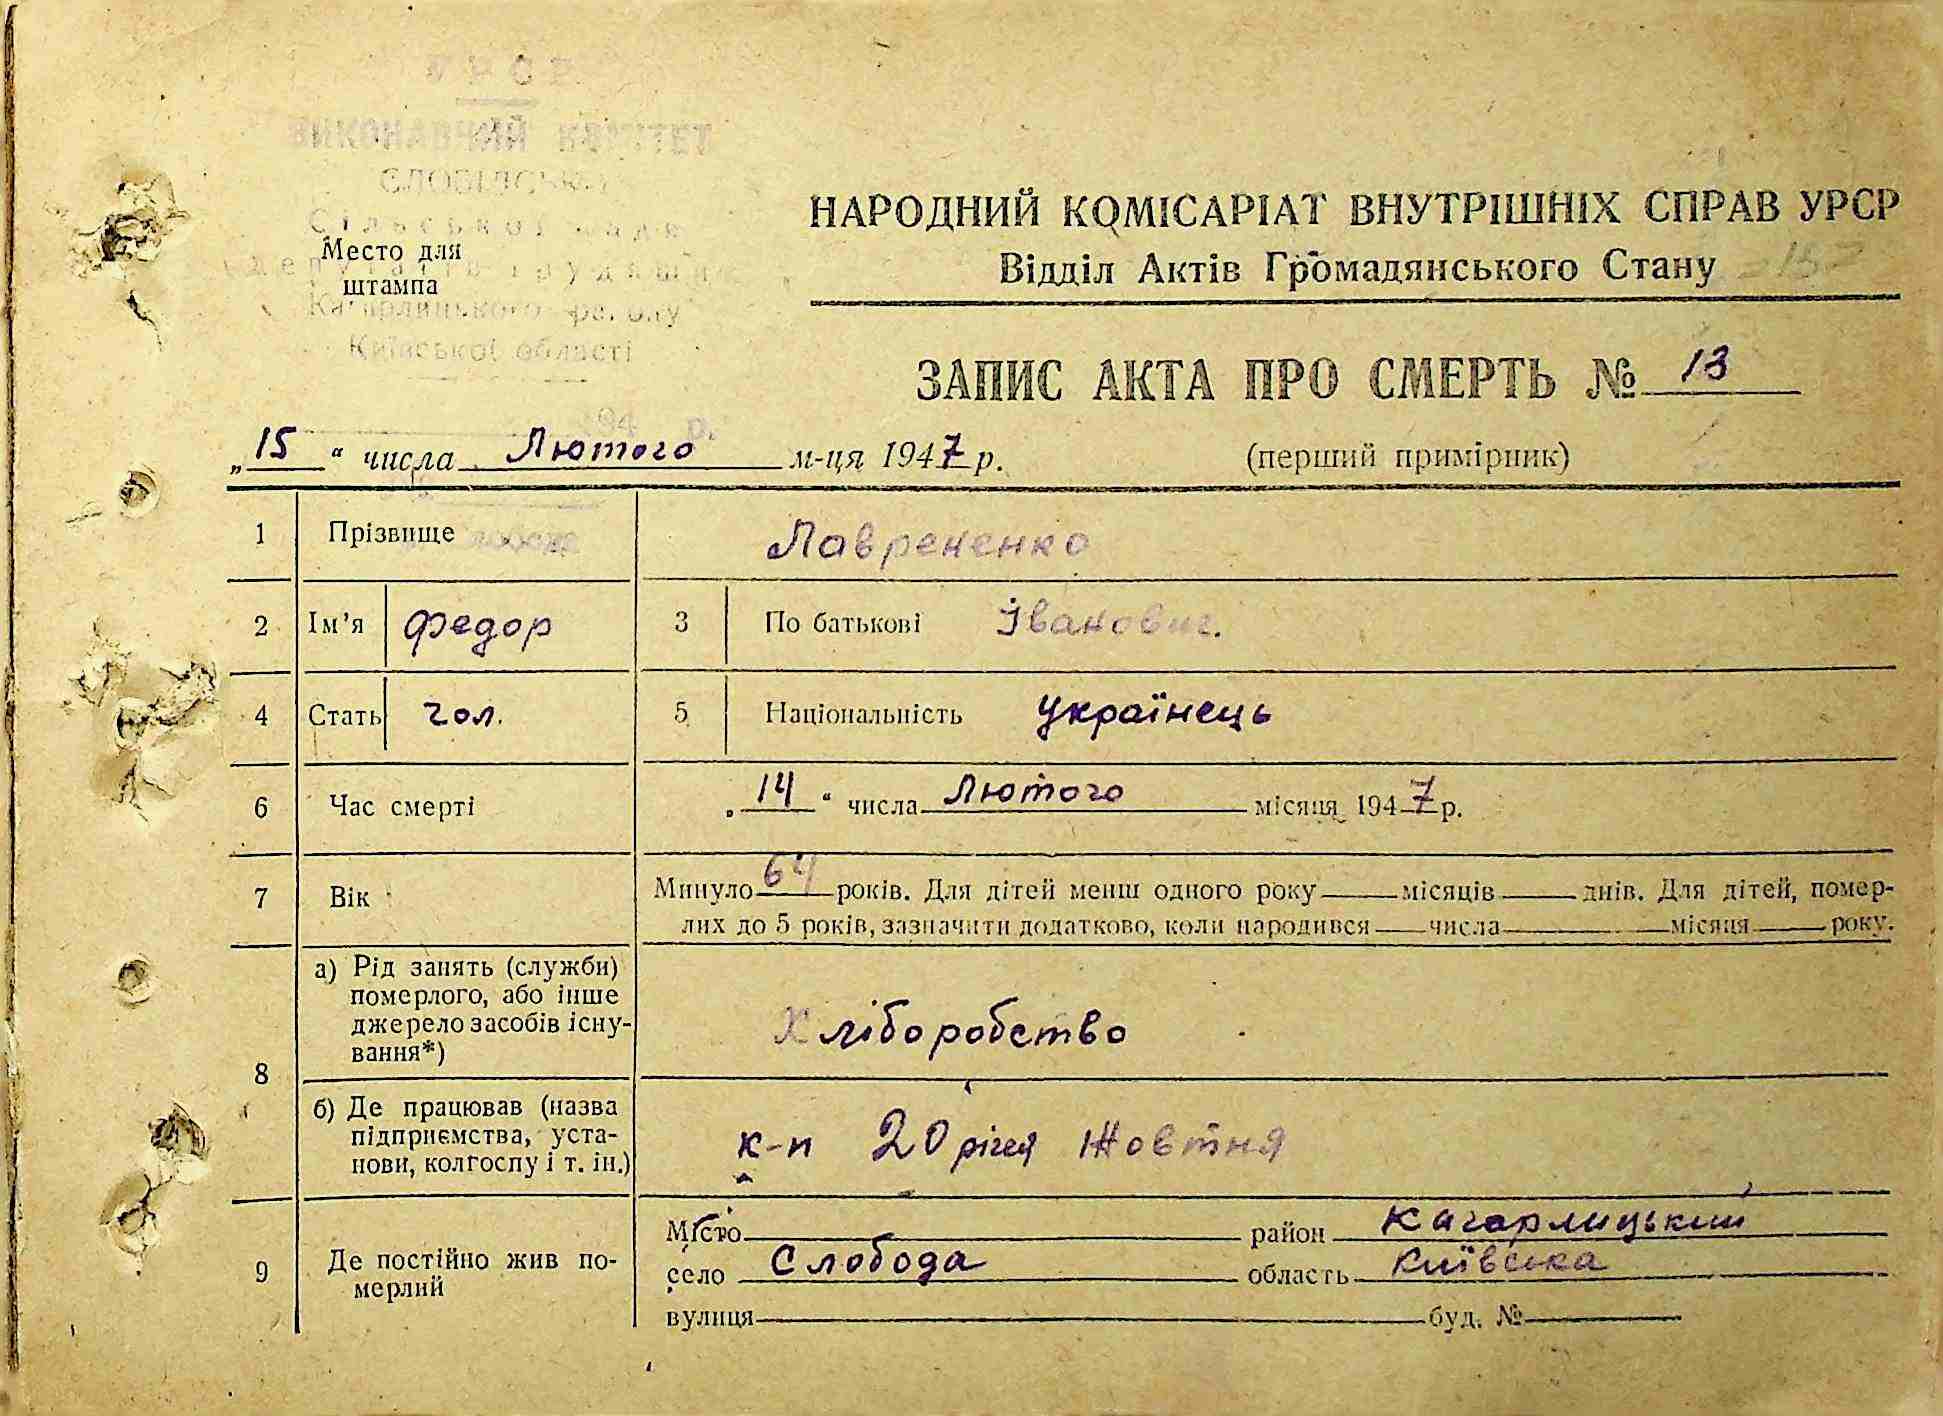 УРСР
ВИКОНАВЧИЙ КОМІТЕТ
Сільської Ради
Депутатів Трудящих
Кагарлицького району
Київської області
194 р.
Место для
штампа
НАРОДНИЙ КОМІСАРІАТ ВНУТРІШНІХ СПРАВ УРСР
Відділ Актів Громадянського Стану
ЗАПИС АКТА ПРО СМЕРТЬ № 13
„15“ числа Лютого м-ця 1947 р. (перший примірник)
1 Прізвище Лаврененко
2 Ім’я Федор 3 По батькові Іванович.
4 Стать чол. 5 Національність українець
6 Час смерті „14“ числа Лютого місяця 1947 р.
7 Вік Минуло 64 років. Для дітей менш одного року місяців днів. Для дітей, помер-
лих до 5 років, зазначити додатково, коли народився числа місяця року.
8 а) Рід занять (служби)
померлого, або інше
джерело засобів існу-
вання*)
Хліборобство
б) Де працював (назва
підприємства, уста-
нови, колгоспу і т. ін.)
к-п 20 річчя Жовтня
9 Де постійно жив по-
мерлий
Місто район Кагарлицький
село Слобода область Київська
вулиця буд. №